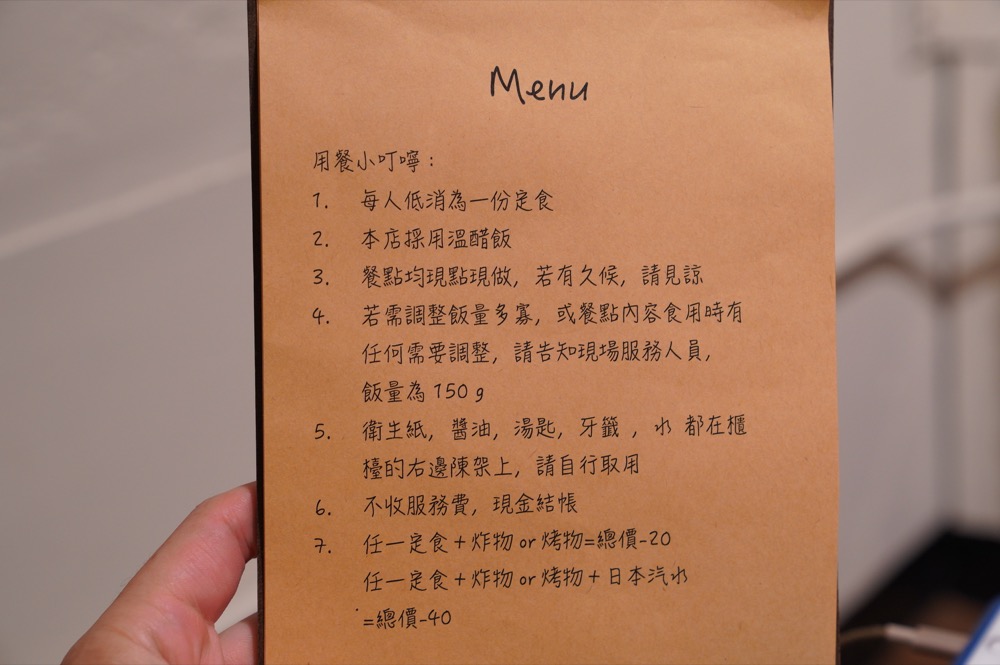 Menu
用餐小叮嚀：
1. 每人低消為一份定食
2. 本店採用溫醋飯
3. 餐點均現點現做，若有久候，請見諒
4. 若需調整飯量多寡，或餐點內容食用時有
任何需要調整，請告知現場服務人員，
飯量為 150 g
5. 衛生紙，醬油，湯匙，牙籤 ，水 都在櫃
檯的右邊陳架上，請自行取用
6. 不收服務費，現金結帳
7. 任一定食＋炸物 or 烤物=總價-20
任一定食＋炸物 or 烤物＋日本汽水
=總價-40